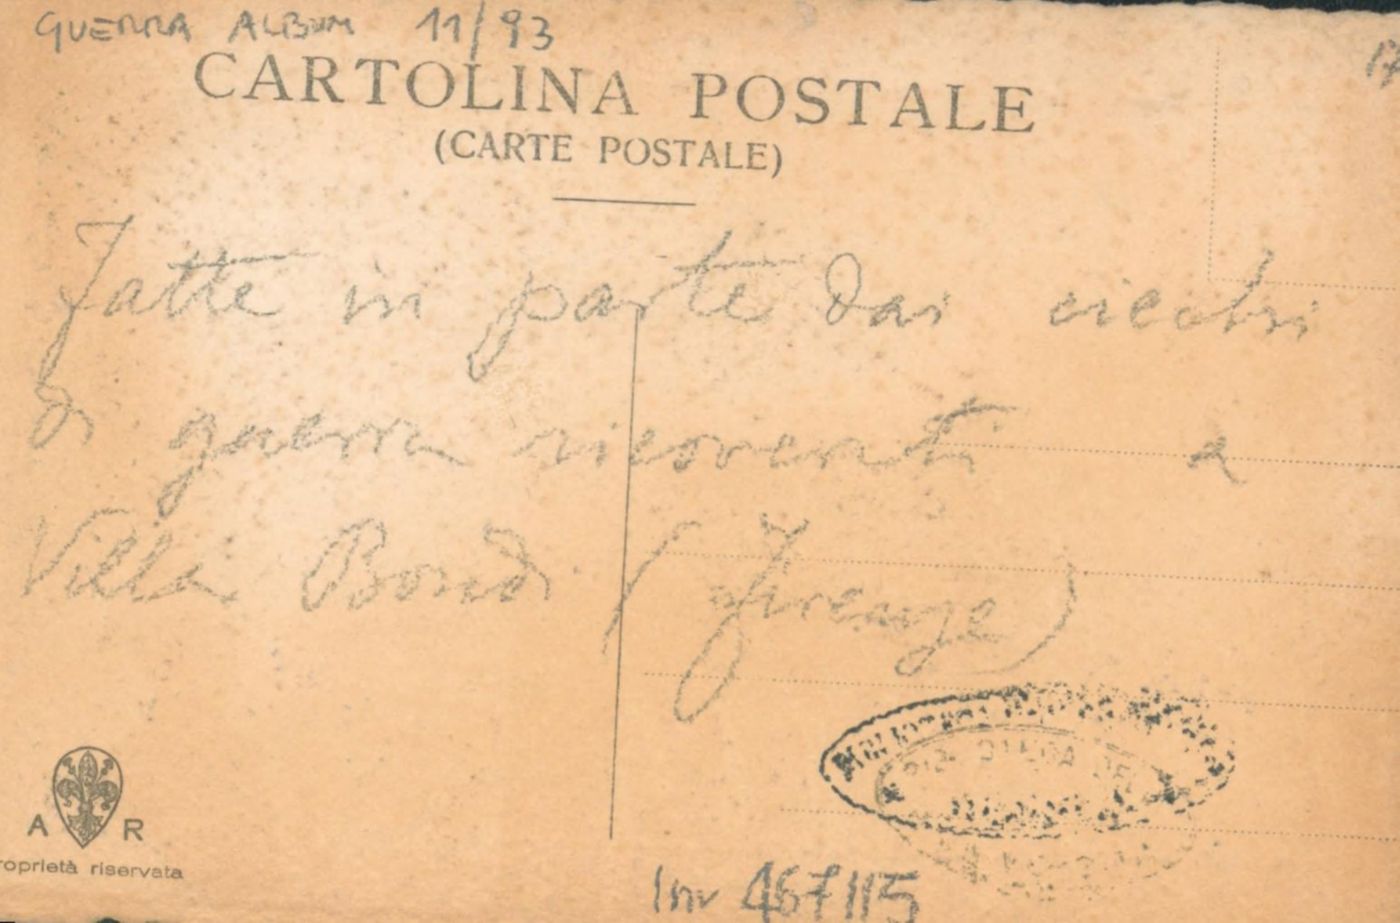 GUERRA ALBUM 11/93
17
CARTOLINA POSTALE
(CARTE POSTALE)
Fatte in parte dai ciechi
di guerra ricoverati a
Villa Bondi (Firenze)
A R
roprietà riservata
BIBLIOTECA
GUERRA
Inv 467115